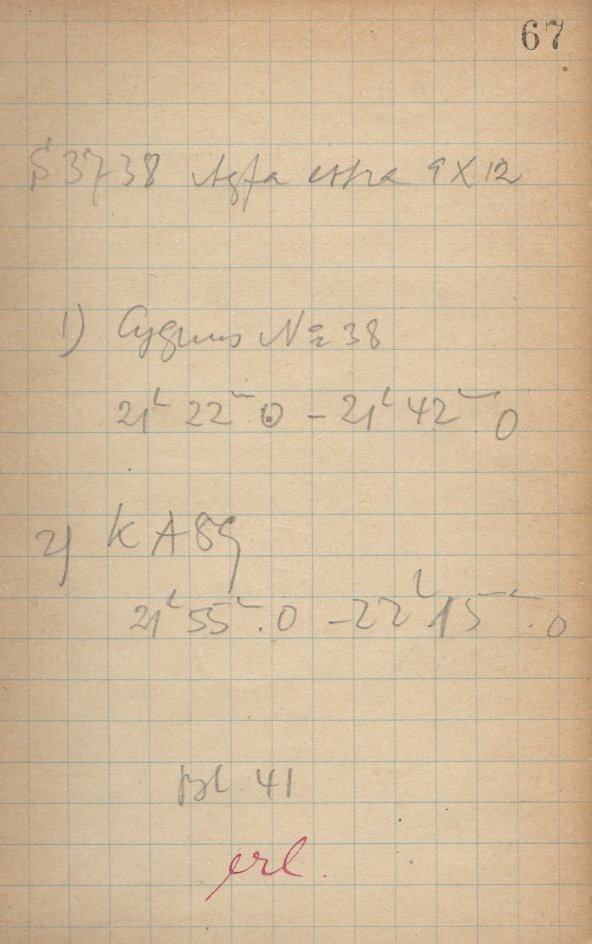 67
S 3738 Agfa extra 9X12
1) Cygnus No 38
21h 22m.0 - 21h 42m.0
2) KA 89
21h 55m.0 - 22h 15m.0
Bl 41
erl.